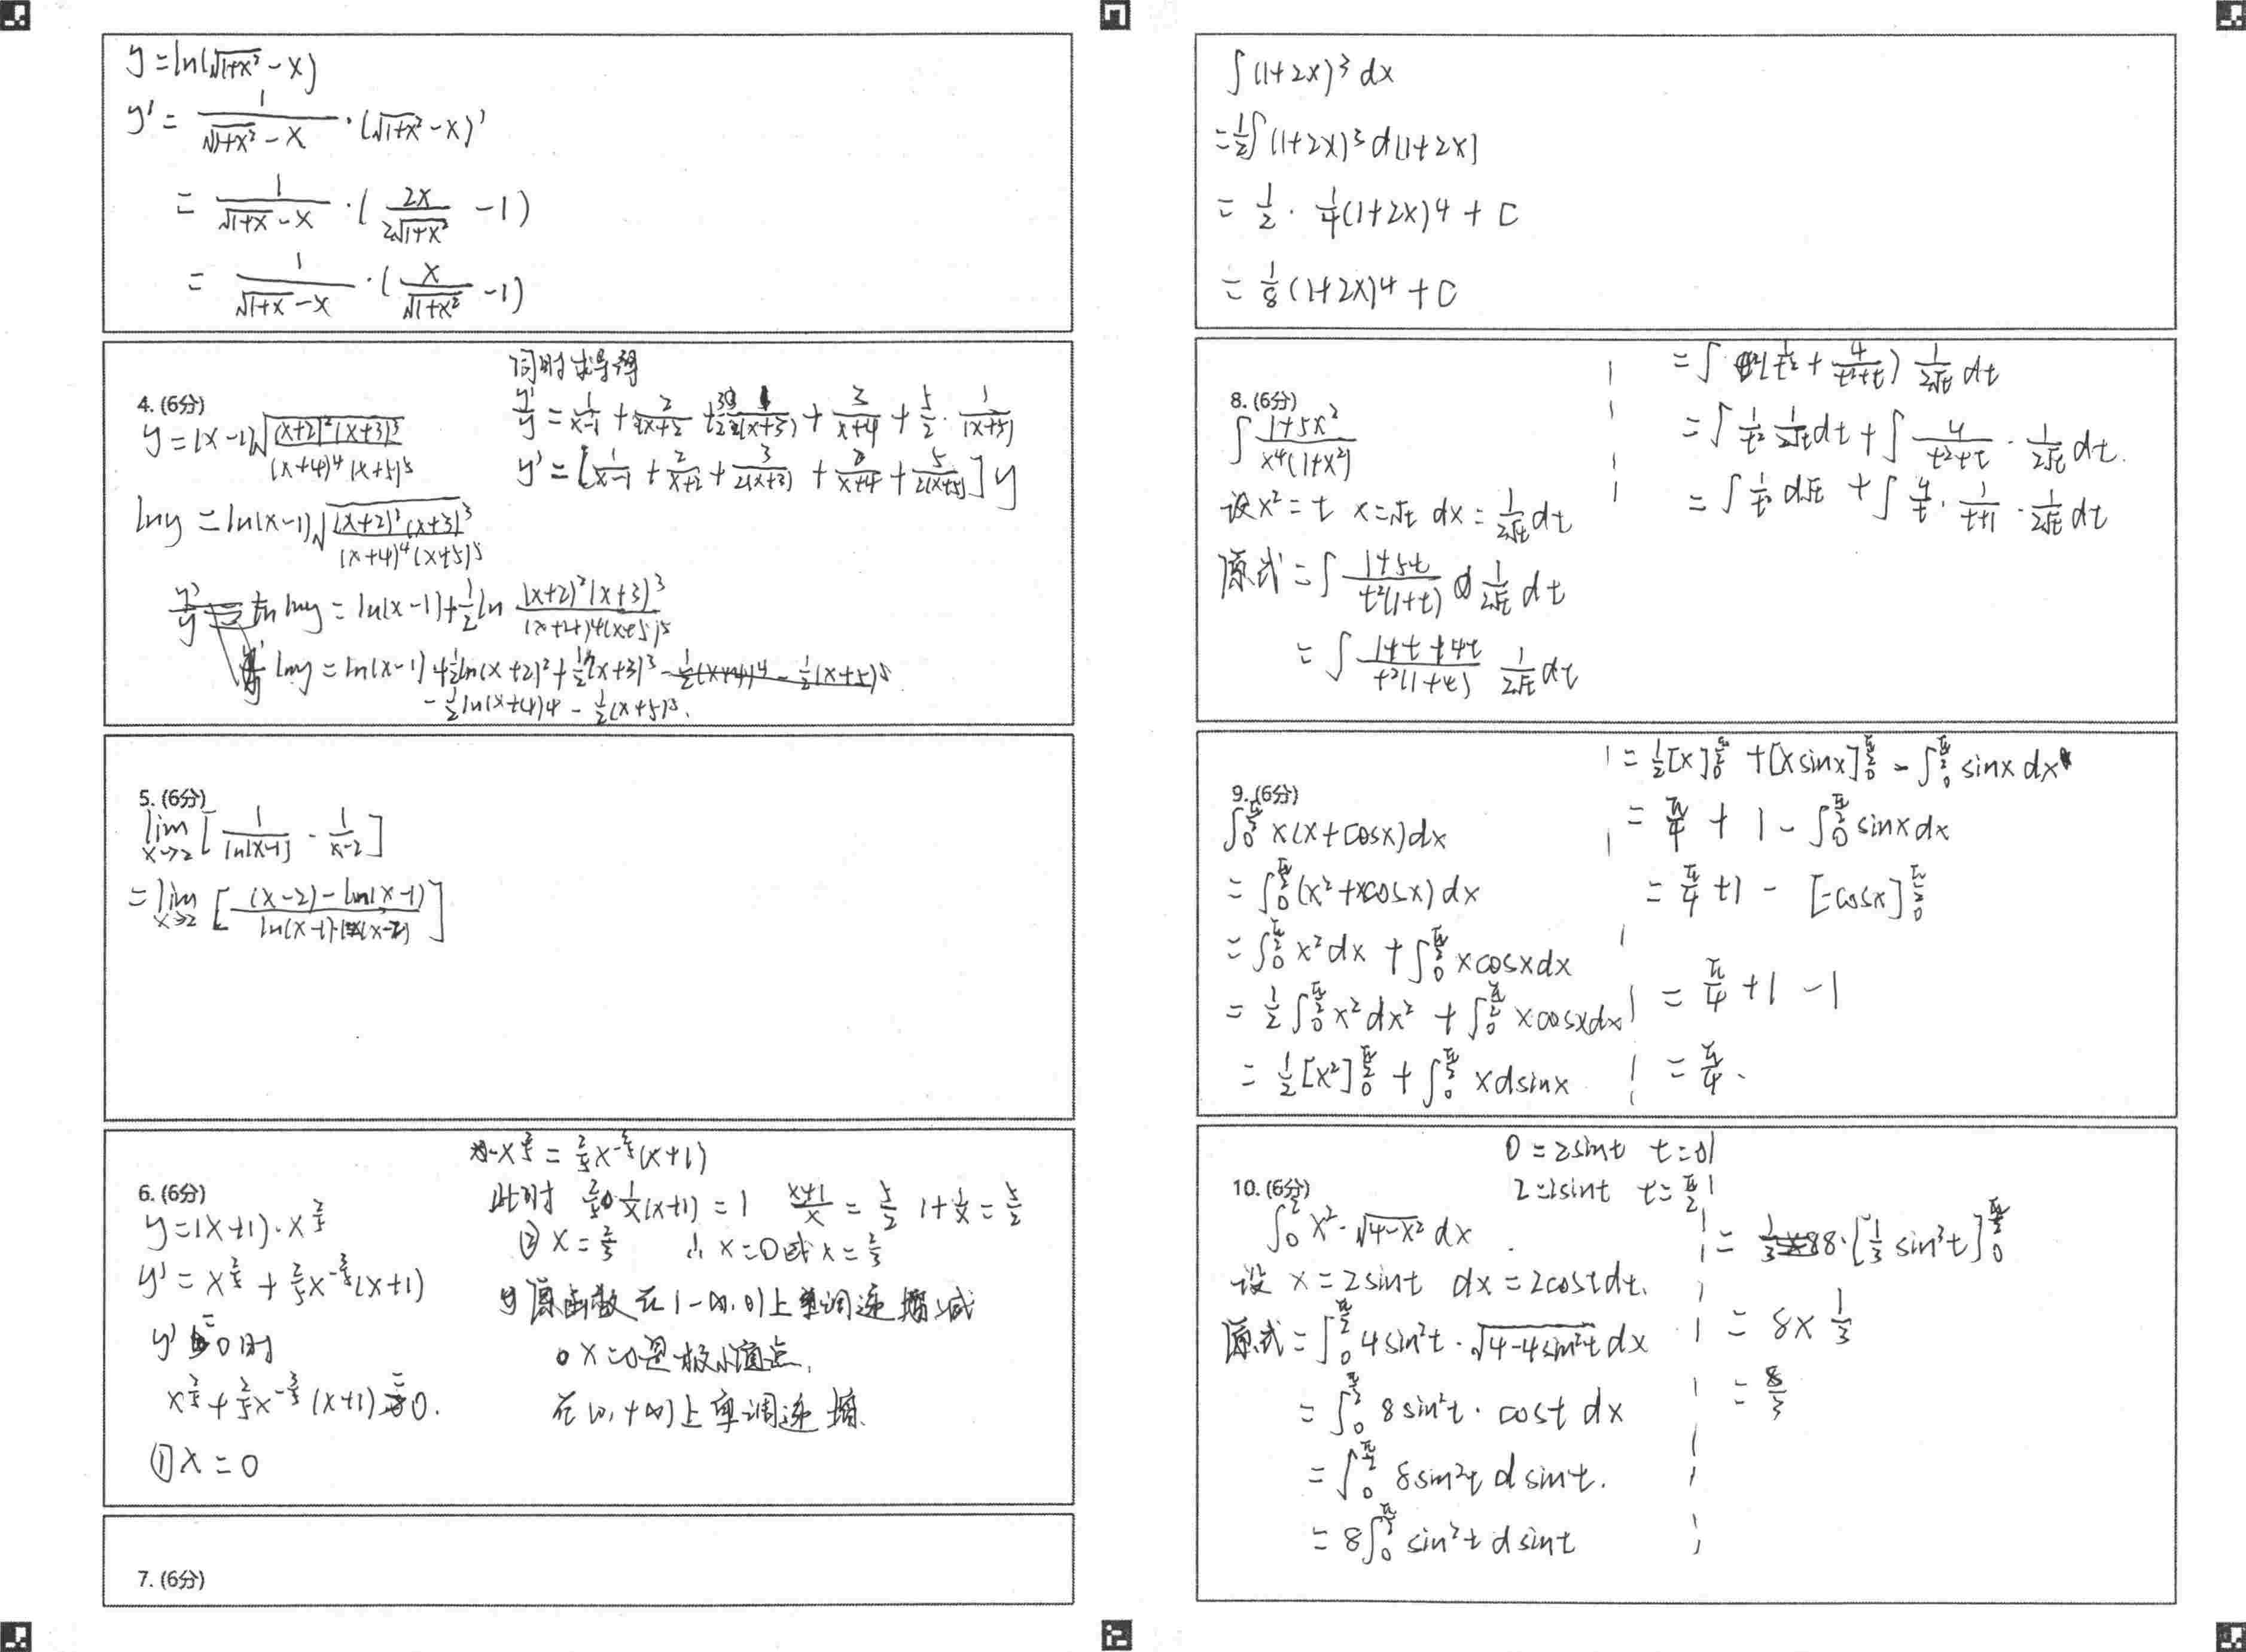 y=ln(√(1+x²)-x)
y'=1/(√(1+x²)-x)·(√(1+x²)-x)'
=1/(√(1+x)-x)·(2x/(2√(1+x²))-1)
=1/(√(1+x)-x)·(x/√(1+x²)-1)
4. (6分)
y=(x-1)√((x+2)²(x+3)³/((x+4)⁴(x+5)⁵))
lny=ln(x-1)√((x+2)²(x+3)³/((x+4)⁴(x+5)⁵))
lny=ln(x-1)+½ln (x+2)²(x+3)³/((x+4)⁴(x+5)⁵)
lny=ln(x-1)+½ln(x+2)²+½(x+3)³
-½ln(x+4)4-½(x+5)⁵.
同时求导得
y'/y=1/(x-1)+2/(x+2)+3/(2(x+3))+3/(x+4)+5/2·1/(x+5)
y'=[1/(x-1)+2/(x+2)+3/(2(x+3))+2/(x+4)+5/(2(x+5))]y
5. (6分)
lim x→2 [1/ln(x-1)-1/(x-2)]
=lim x→2 [((x-2)-ln(x-1))/(ln(x-1)·(x-2))]
6. (6分)
y=(x+1)·x^(2/5)
y'=x^(2/5)+2/5x^(-3/5)(x+1)
y'=0时
x^(2/5)+2/5x^(-3/5)(x+1)=0.
①x=0
-x^(2/5)=2/5x^(-3/5)(x+1)
此时 2/5·1/x(x+1)=1 (x+1)/x=5/2 1+1/x=5/2
②x=2/3 ∴x=0或x=2/3
原函数在(-∞,0)上单调递减
x=0是极小值点,
在(0,+∞)上单调递增.
7. (6分)
∫(1+2x)³dx
=½∫(1+2x)³d(1+2x)
=½·¼(1+2x)4+C
=⅛(1+2x)4+C
8. (6分)
∫(1+5x²)/(x⁴(1+x²))
设x²=t x=√t dx=1/(2√t)dt
原式=∫(1+5t)/(t²(1+t)) 1/(2√t)dt
=∫(1+t+4t)/(t²(1+t)) 1/(2√t)dt
=∫(1/t²+4/(t²+t))1/(2√t)dt
=∫1/t² 1/(2√t)dt+∫4/(t²+t)·1/(2√t)dt.
=∫1/t² d√t+∫4/t·1/(t+1)·1/(2√t)dt
9. (6分)
∫₀^(π/2) x(x+cosx)dx
=∫₀^(π/2)(x²+xcosx)dx
=∫₀^(π/2)x²dx+∫₀^(π/2)xcosxdx
=½∫₀^(π/2)x²dx²+∫₀^(π/2)xcosxdx
=½[x²]₀^(π/2)+∫₀^(π/2)xdsinx
=½[x]₀^(π/2)+[xsinx]₀^(π/2)-∫₀^(π/2)sinxdx
=π/4+1-∫₀^(π/2)sinxdx
=π/4+1-[-cosx]₀^(π/2)
=π/4+1-1
=π/4.
10. (6分)
∫₀²x²·√(4-x²)dx
设x=2sint dx=2costdt.
原式=∫₀^(π/2)4sin²t·√(4-4sin²t)dx
=∫₀^(π/2)8sin²t·costdx
=∫₀^(π/2)8sin²tdsint.
=8∫₀^(π/2)sin²tdsint
0=2sint t=0
2=2sint t=π/2
=8·[⅓sin³t]₀^(π/2)
=8×⅓
=8/3